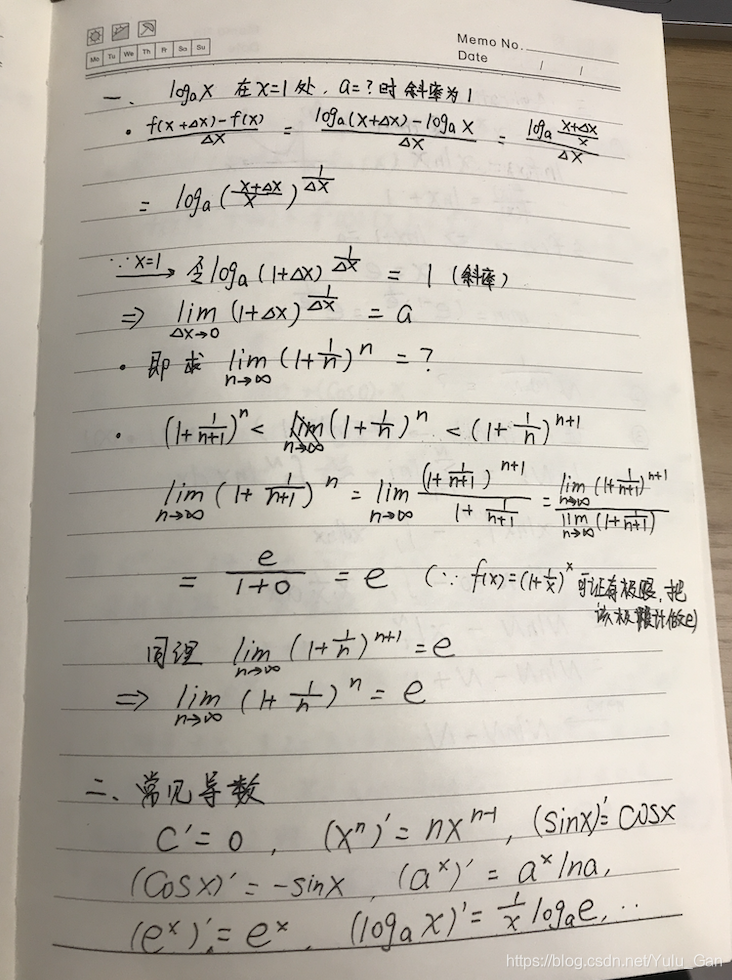 Mo Tu We Th Fr Sa Su
Memo No.
Date / /
一、 logₐx 在x=1处, a=?时斜率为1
· (f(x+Δx)-f(x))/Δx = (logₐ(x+Δx)-logₐx)/Δx = (logₐ((x+Δx)/x))/Δx
= logₐ((x+Δx)/x)^(1/Δx)
∵x=1 → 令logₐ(1+Δx)^(1/Δx) = 1 (斜率)
⇒ lim_(Δx→0) (1+Δx)^(1/Δx) = a
· 即求 lim_(n→∞) (1+1/n)^n = ?
· (1+1/(n+1))^n < (1+1/n)^n < (1+1/n)^(n+1)
lim_(n→∞) (1+1/(n+1))^n = lim_(n→∞) ((1+1/(n+1))^(n+1))/(1+1/(n+1)) = (lim_(n→∞) (1+1/(n+1))^(n+1))/(lim_(n→∞) (1+1/(n+1)))
= e/(1+0) = e (∵ f(x)=(1+1/x)^x 可证有极限, 把
该极限计做e)
同理 lim_(n→∞) (1+1/n)^(n+1) = e
⇒ lim_(n→∞) (1+1/n)^n = e
二、常见导数
C'=0, (x^n)'=nx^(n-1), (sinx)'=cosx
(cosx)'=-sinx, (a^x)'=a^x lna,
(e^x)'=e^x, (logₐx)'=1/x logₐe, ...
https://blog.csdn.net/Yulu_Gan